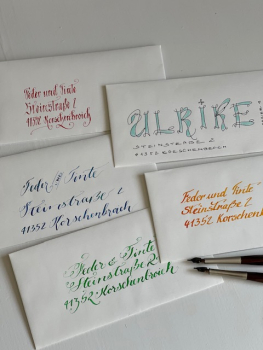 Feder und Tinte
Steinstraße 2
41352 Korschenbroich
ULRIKE
STEINSTRASSE 2
41352 KORSCHENBROICH
Feder & Tinte
Steinstraße 2
41352 Korschenbroich
Feder und Tinte
Steinstraße 2
41352 Korschenbroich
Feder & Tinte
Steinstraße 2
41352 Korschenbroich